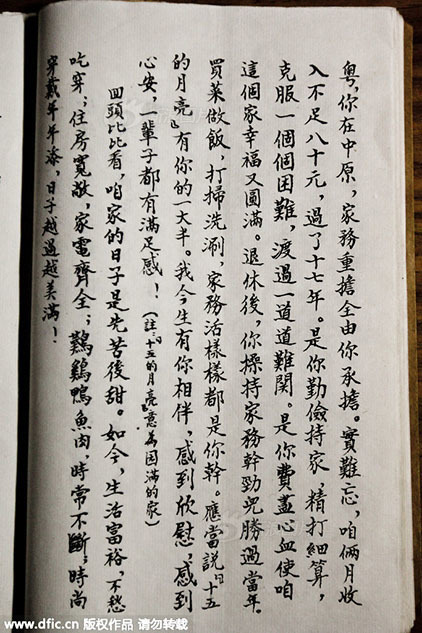 粤,你在中原,家務重擔全由你承擔。實難忘,咱俩月收
入不足八十元,過了十七年。是你勤儉持家,精打細算,
克服一個個困難,渡過一道道難関。是你費盡心血使咱
這個家幸福又圓滿。退休後,你操持家務幹勁児勝過當年。
買菜做飯,打掃洗涮,家務活樣樣都是你幹。應當説『十五
的月亮』有你的一大半。我今生有你相伴,感到欣慰,感到
心安,一輩子都有滿足感!(註:『十五的月亮』意為圓滿的家)
回頭比比看,咱家的日子是先苦後甜。如今,生活富裕,不愁
吃穿;住房寬敞,家電齊全;鷄鴨魚肉,時常不斷;時尚
穿戴年年添,日子越過越美滿!
www.dfic.cn 版权作品 请勿转载